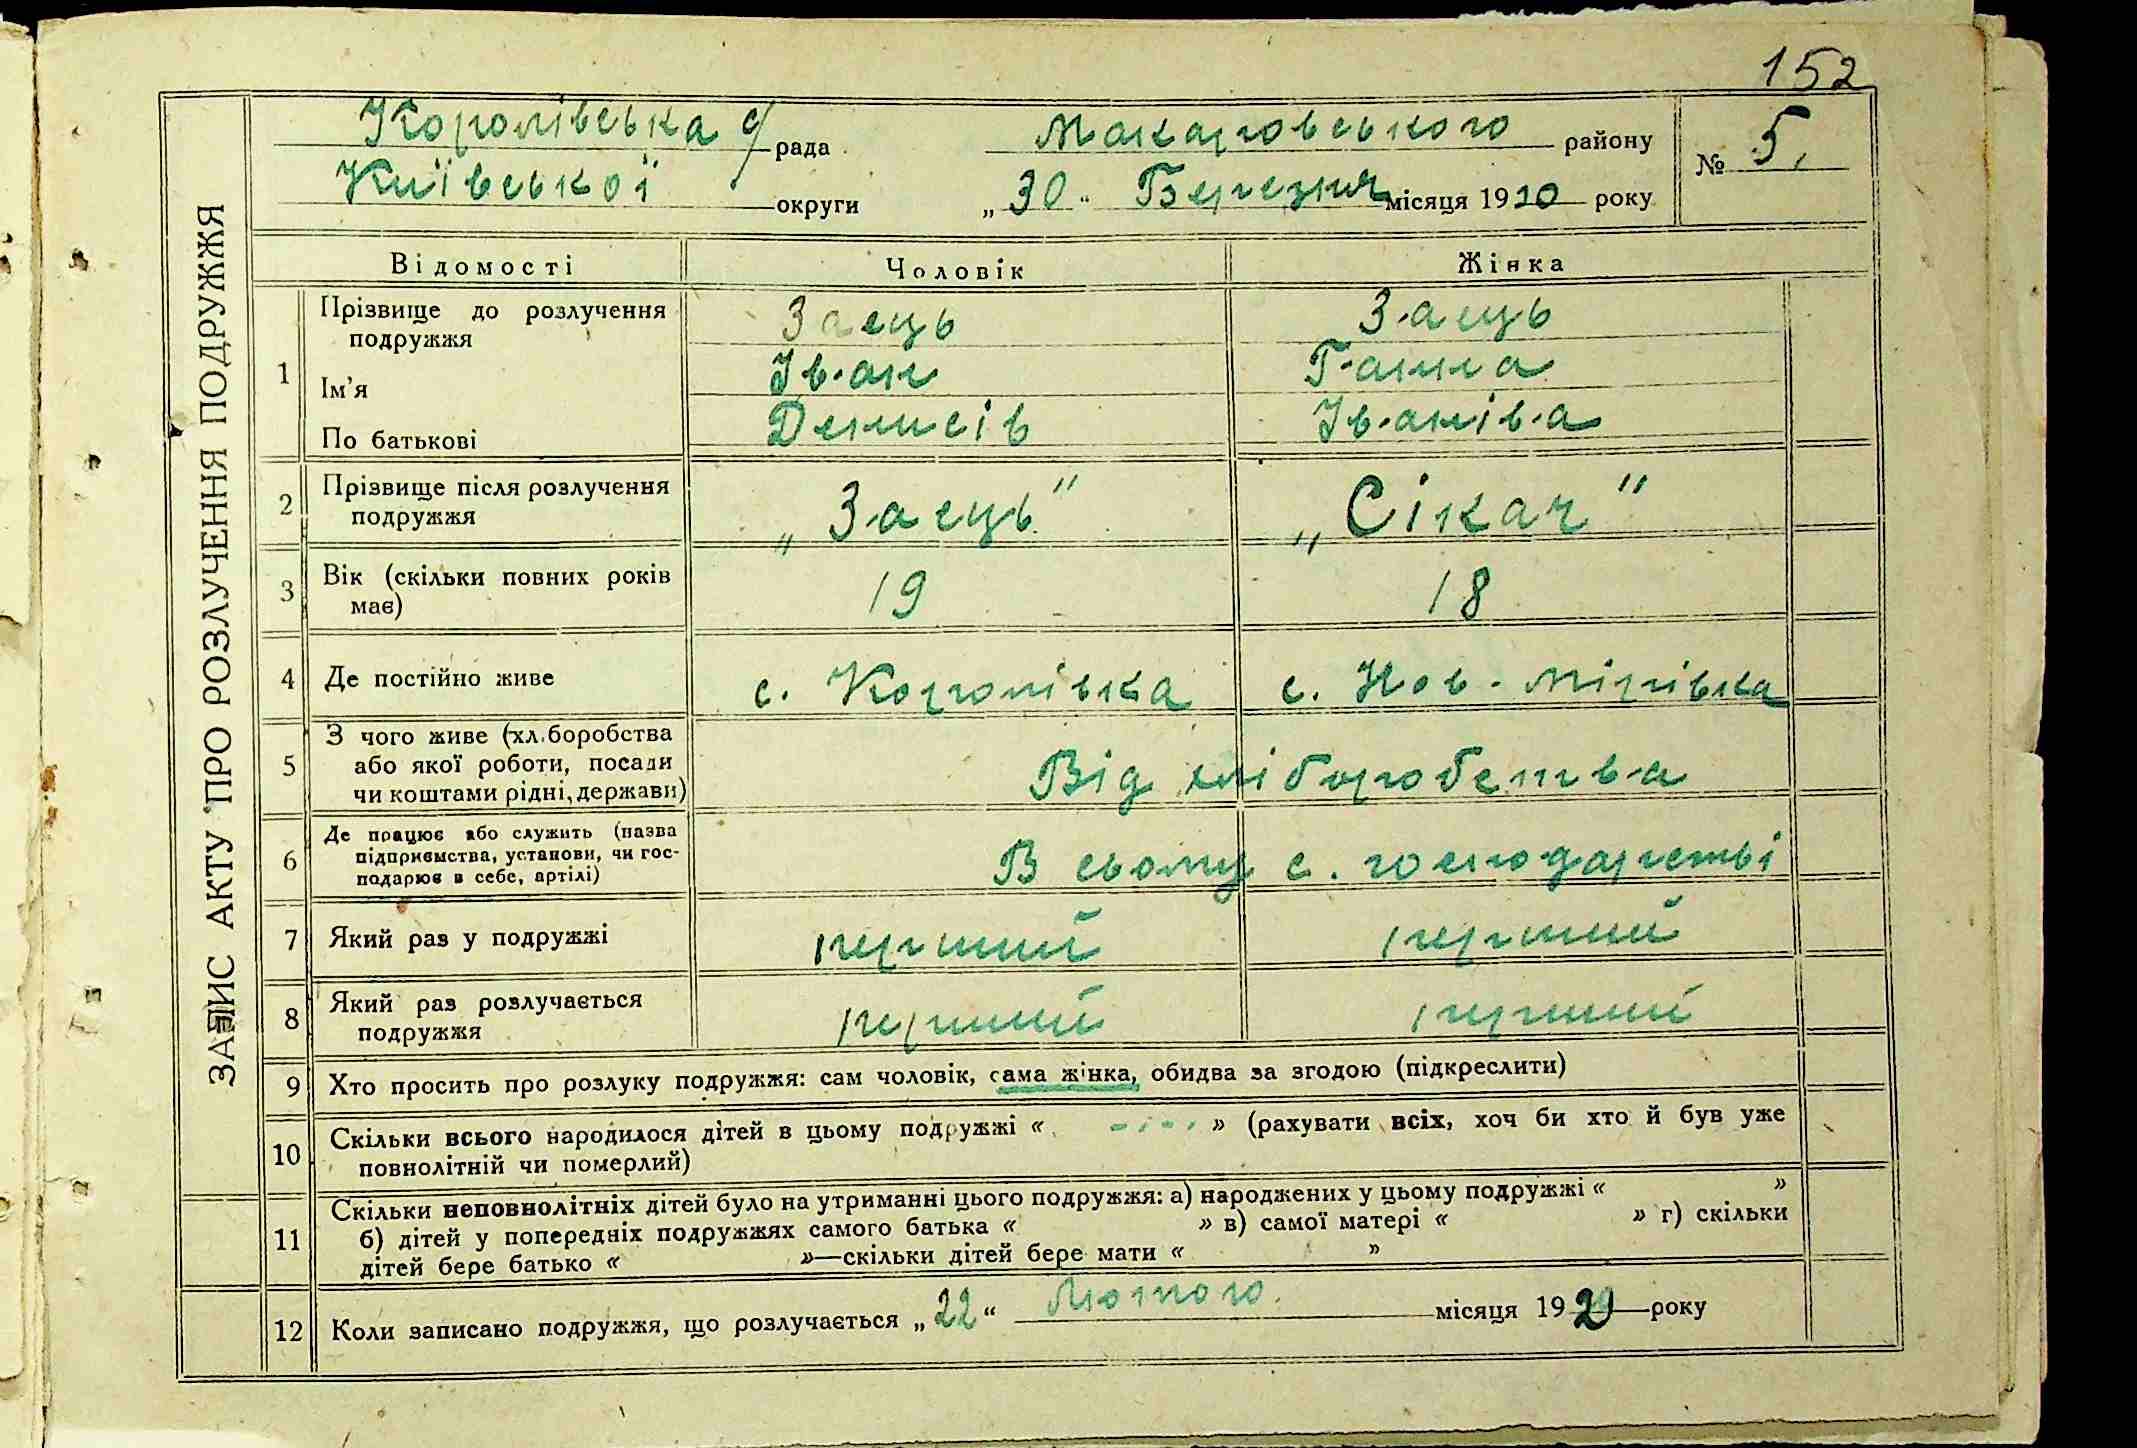 152
ЗАПИС АКТУ ПРО РОЗЛУЧЕННЯ ПОДРУЖЖЯ
Королівська с/рада Макаровського району № 5.
Київської округи „30" Березня місяця 1930 року
Відомості Чоловік Жінка
1 Прізвище до розлучення подружжя Заєць Заєць
Ім'я Іван Ганна
По батькові Денисів Іванівна
2 Прізвище після розлучення подружжя „Заєць" „Сікач"
3 Вік (скільки повних років має) 19 18
4 Де постійно живе с. Королівка с. Нов-Мирівка
5 З чого живе (хл.боробства або якої роботи, посади чи коштами рідні, держави) Від хліборобства
6 Де працює або служить (назва підприємства, установи, чи господарює в себе, артілі) В сьому с. господарстві
7 Який раз у подружжі перший перший
8 Який раз розлучається подружжя перший перший
9 Хто просить про розлуку подружжя: сам чоловік, сама жінка, обидва за згодою (підкреслити)
10 Скільки всього народилося дітей в цьому подружжі « - · - · » (рахувати всіх, хоч би хто й був уже
повнолітній чи померлий)
11 Скільки неповнолітніх дітей було на утриманні цього подружжя: а) народжених у цьому подружжі « »
б) дітей у попередніх подружжях самого батька « » в) самої матері « » г) скільки
дітей бере батько « »—скільки дітей бере мати « »
12 Коли записано подружжя, що розлучається „22" Лютого місяця 1929 року